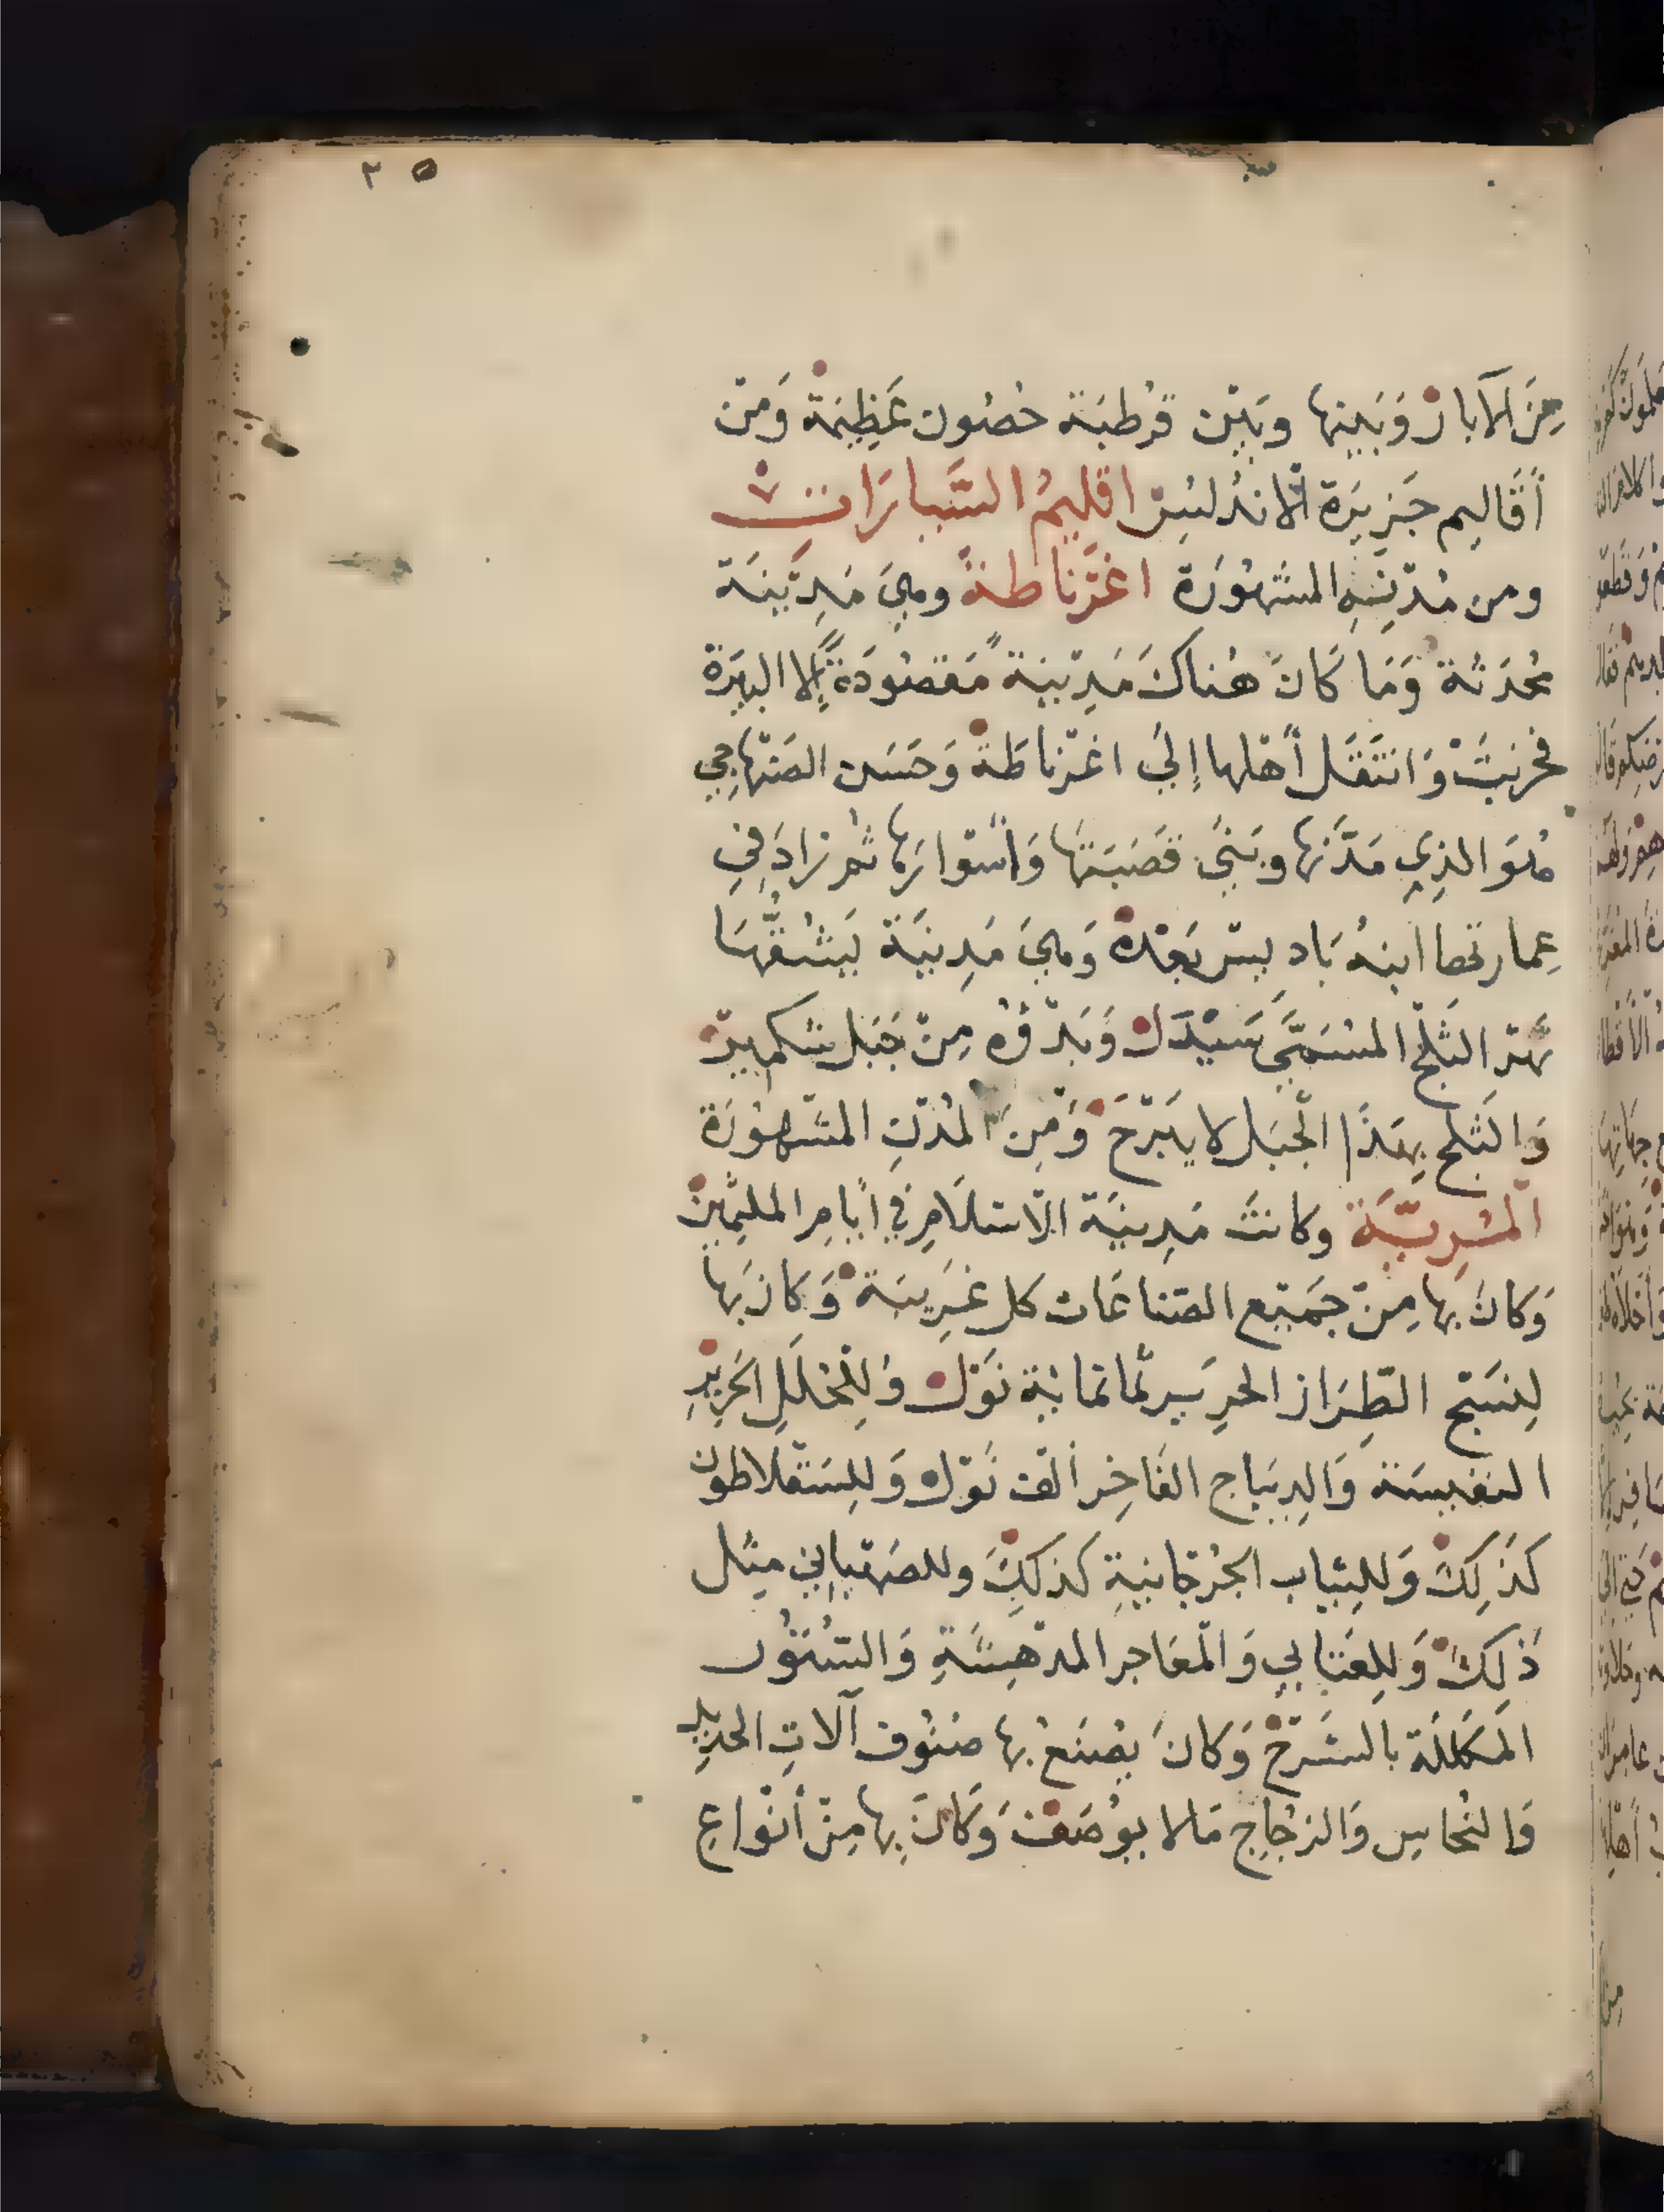 ٣٥
مِنَ الآبارْ وَبَينها وبَيْن قرْطبَة حُصُون عَظِيمَةْ وَمنْ
أقَاليم جَزيرَة الأنْدلُسْ اقليمُ السَّبارَات
ومن مُدْنِهِ المشهُورَة اغْرْناطة وهيَ مَدِيْنَة
مُحْدَثة وَمَا كَانَ هُناكَ مَدِيْنَة مَقصُودَة إلا البيرَة
فخربَتْ وَانتَقَل أهْلها إلَي اغْرناطَة وَحَسَن الصَنْهاجي
هُوَ الذِي مَدَّنها وبَنَي قَصَبَتها وَأسْوارَها ثم زادَ في
عِمارتها ابنهُ بَاديسْ بَعْدهْ وَهيَ مَدِينَة يَشُقُّهَا
نَهْر الثَلْج المُسَمَّي سَيْدَل وَبَدْؤُه مِنْ جَبَل شكميرْ
وَالثَلج بِهَذا الْجبَل لا يَبْرَحْ وَمِنَ الْمُدْنِ المشْهُورَة
الْمَرِيَّة وكانتْ مَدِينَة الاسْلَامِ في أيَامِ الملثِّمين
وَكانَ بها مِنْ جَميْع الصنَاعَات كل غَرِيبَة وَكانَ بها
لِنسْج الطِرَاز الحرير ثمانمائة نَوْل وَلِلْحُلَلِ الحَرير
النَفيسَة وَالدِيبَاج الفَاخِر ألْف نَوْل وَللِسَقْلاطون
كذَلِكْ وَللِثيَاب الجُرْجَانية كذلِكْ وللاصْبهَاني مِثل
ذَلِكْ وَللِعَتابي وَالْمعَاجر المدْهِشَةِ وَالسُتُور
المُكَلَّلَة بالشَرْح وَكانَ يُصْنَعُ بها صُنُوف آلاتِ الحدِيد
وَالنُحَاسِ وَالزجَاجِ مَا لا يُوصَفْ وَكَانَ بِها مِنْ أنْواعِ